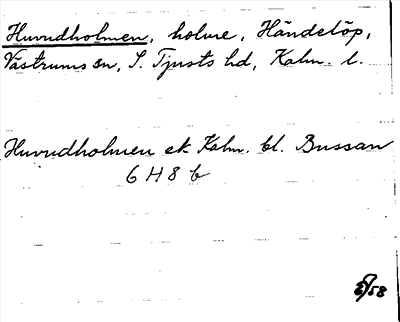 Huvudholmen, holme, Händelöp,
Västrums sn, S. Tjusts hd, Kalm. l.
Huvudholmen ek Kalm. bl. Bussan
6 H 8 b
/58